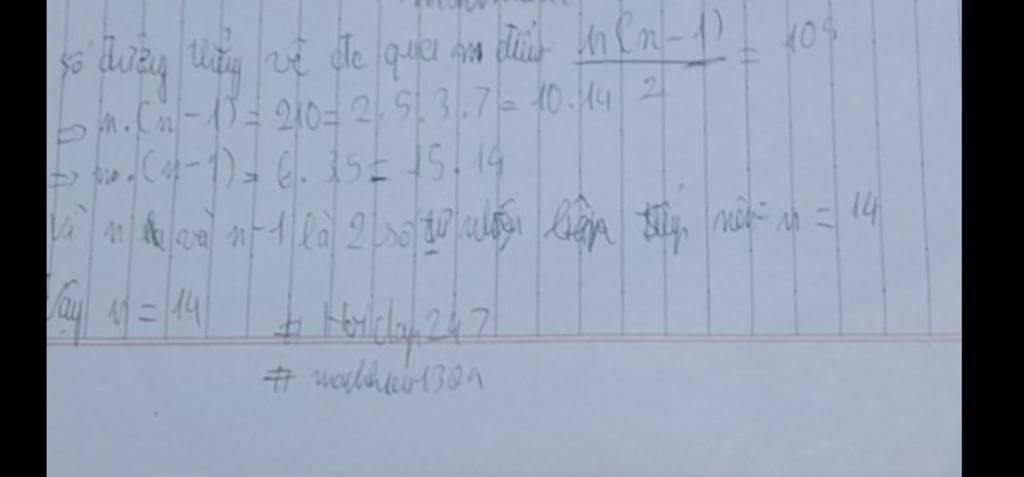 số đường thẳng vẽ đc qua n điểm n(n-1)/2 = 105
=> n.(n-1) = 210 = 2.5.3.7 = 10.14
=> n.(n-1) = 6.35 = 15.14
Vì n và n-1 là 2 số tự nhiên liên tiếp nên n = 14
Vậy n = 14
# Hoidap247